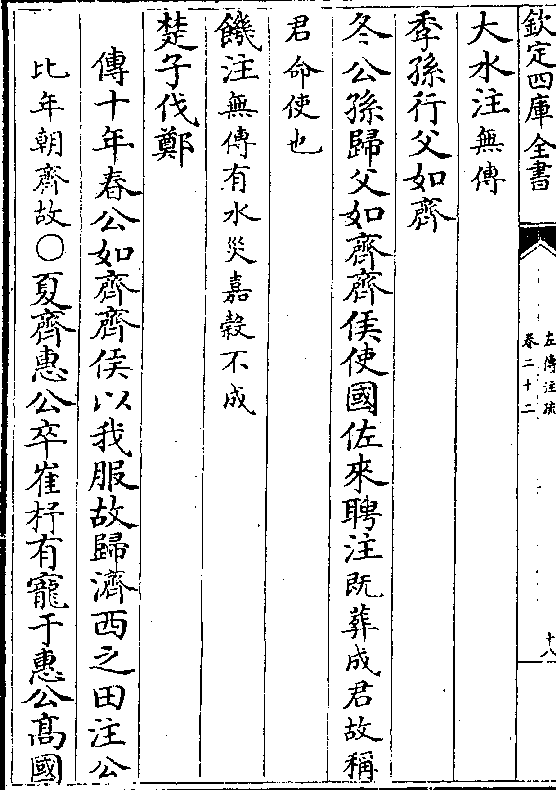 欽定四庫全書
左傳注疏
卷二十二
十八
大水注無傳
季孫行父如齊
冬公孫歸父如齊齊侯使國佐來聘注既葬成君故稱
君命使也
饑注無傳有水災嘉穀不成
楚子伐鄭
傳十年春公如齊齊侯以我服故歸濟西之田注公
比年朝齊故〇夏齊惠公卒崔杼有寵于惠公髙國